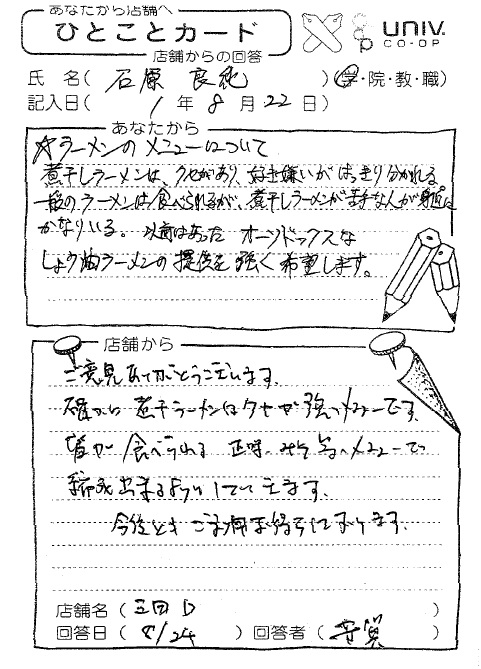 あなたから店舗へ
ひとことカード
店舗からの回答
UNIV.
CO-OP
氏 名( 石原 良純 )(学・院・教・職)
記入日( 1 年 8 月 22 日)
あなたから
☆ラーメンのメニューについて
煮干しラーメンは、クセがあり、好き嫌いがはっきり分かれる
一般のラーメンは食べられるが、煮干しラーメンが苦手な人が身近に
かなりいる。以前はあった オーソドックスな
しょう油ラーメンの提供を強く希望します。
店舗から
ご意見ありがとうございます。
確かに煮干ラーメンはクセが強いメニューです。
皆が食べられる
出来るようにしていきます。
今後ともご利用お待ちしております。
店舗名( 三田D )
回答日( 8/24 ) 回答者( )